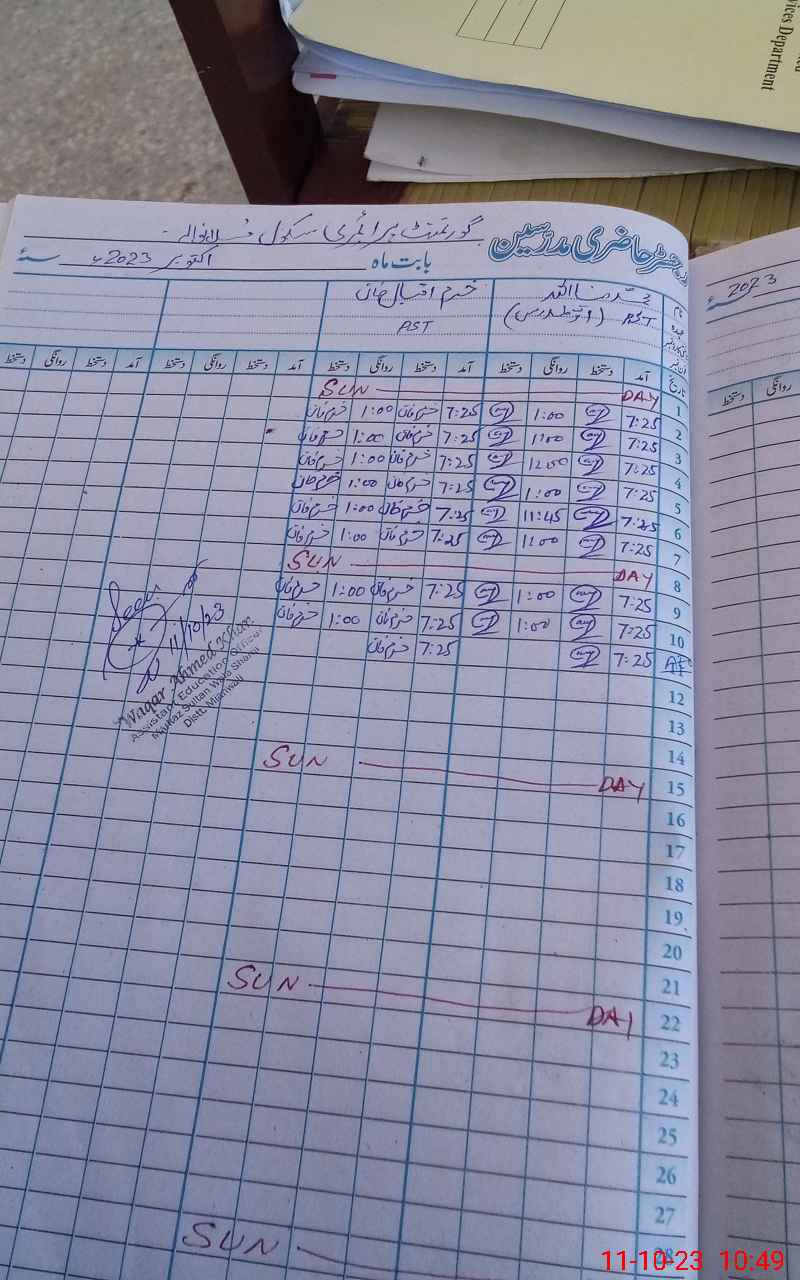 vices Department
رجسٹر حاضری مدرسین
گورنمنٹ پرائمری سکول
بابت ماہ اکتوبر 2023ء
2023
خرم اقبال خان
PST PST
تاریخ آمد دستخط روانگی دستخط آمد دستخط روانگی دستخط آمد دستخط روانگی دستخط آمد دستخط روانگی دستخط
روانگی دستخط
1 SUN DAY
2 7:25 1:00 7:25 خرم خان 1:00 خرم خان
3 7:25 1:00 7:25 خرم خان 1:00 خرم خان
4 7:25 12:00 7:25 خرم خان 1:00 خرم خان
5 7:25 1:00 7:25 خرم خان 1:00 خرم خان
6 7:25 11:45 7:25 خرم خان 1:00 خرم خان
7 7:25 11:00 7:25 خرم خان 1:00 خرم خان
8 SUN DAY
9 7:25 1:00 7:25 خرم خان 1:00 خرم خان
10 7:25 1:00 7:25 خرم خان 1:00 خرم خان
7:25 7:25 خرم خان
12
13
14
15 SUN DAY
16
17
18
19
20
21
22 SUN DAY
23
24
25
26
27
28
SUN
Seen
11/10/23
Waqar Ahmed Khan
Assistant Education Officer
Markaz Sultan Wala Sharif
Distt. Mianwali
11-10-23 10:49